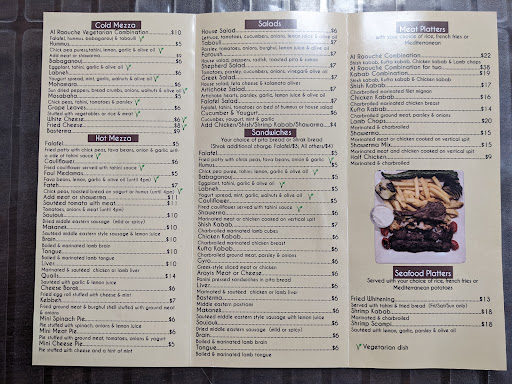 Cold Mezza
Al Raouche Vegetarian Combination $10
Falafel, hummus, babaganouj & tabouli
Hummus $5
Chick peas purée, tahini, lemon, garlic & olive oil
Add meat or shawarma $5
Babaganouj $6
Eggplant, tahini, garlic & olive oil
Labneh $6
Yogurt spread, mint, garlic, walnuts & olive oil
Mohamara $6
Sun dried peppers, bread crumbs, onions, walnuts & olive oil
Masabaha $5
Chick peas, tahini, tomatoes & parsley
Grape Leaves $6
Stuffed with vegetables or rice & meat
White Cheese $6
Fried Cheese $8
Basterma $9
Hot Mezza
Falafel $5
Fried patty with chick peas, fava beans, onion & garlic with
a side of tahini sauce
Cauliflower $6
Fried cauliflower served with tahini sauce
Foul Medamas $5
Fava beans, lemon, garlic & olive oil (until 4pm)
Fateh $7
Chick peas, toasted bread on yogurt or humus (until 4pm)
Add meat or shawarma $11
Sautéed tomato with meat $6
Tomatoes, onions & meat (until 4pm)
Soujouk $10
Dried middle eastern sausage (mild or spicy)
Makanek $10
Sautéed middle eastern style sausage with lemon sauce
Brain $10
Boiled & marinated lamb brain
Tongue $10
Liver $10
Marinated & sautéed chicken or lamb liver
Quails $14
Sautéed with garlic & lemon juice
Cheese Borak $6
Fried egg roll stuffed with cheese & mint
Kebbeh $7
Fried ground meat & burghul shell stuffed with ground meat
& onions
Mini Spinach Pie $6
Pie stuffed with spinach, onions & lemon juice
Mini Meat Pie $6
Pie stuffed with ground meat, tomatoes, onions & yogurt
Mini Cheese Pie $5
Pie stuffed with cheese and a hint of mint
Salads
House Salad $6
Lettuce, tomatoes, cucumbers, onions, lemon juice & olive oil
Tabouli $7
Parsley, tomatoes, onions, burghul, lemon juice & olive oil
Fatoush $7
House salad, peppers, radish, toasted pita & onions
Shepherd Salad
Tomatoes, parsley, cucumbers, onions, vinegar & olive oil
Greek Salad
House salad, feta cheese & kalamata olives
Artichoke Salad
Artichoke hearts, parsley, garlic, lemon juice & olive oil
Falafel Salad
Falafel, tahini, tomatoes on bed of hummus or house salad
Cucumber & Yogurt
Cucumber, yogurt, mint & garlic
Add Chicken/Shish/Shrimp Kabab/Shawarma $4
Sandwiches
Your choice of pita bread or Sirok bread
(Sirok additional charge: Falafel/$3; All others/$4)
Falafel $5
Fried patty with chick peas, fava beans, onion & garlic
Humus $5
Chick pea puree, tahini, lemon, garlic & olive oil
Babaganouj $5
Eggplant, tahini, lemon, garlic & olive oil
Labneh $5
Yogurt spread, mint, garlic, walnuts & olive oil
Cauliflower $5
Fried cauliflower served with tahini sauce
Shawarma $6
Marinated meat or chicken cooked on vertical spit
Shish Kabab $7
Charbroiled marinated lamb cubes
Chicken Kabab $6
Charbroiled marinated chicken breast
Kufta Kabab $6
Charbroiled ground meat, parsley & onions
Gyro $6
Greek-style sliced meat or chicken
Arayis Meat or Cheese $6
Panini pressed sandwiches in pita bread
Liver $6
Marinated & sautéed chicken or lamb liver
Basterma $6
Middle eastern pastrami
Makanek $6
Sautéed middle eastern style sausage with lemon juice
Soujouk $6
Dried middle eastern sausage (mild or spicy)
Brain $6
Boiled & marinated lamb brain
Tongue $6
Boiled & marinated lamb tongue
Meat Platters
with your choice of rice, french fries or
Mediterranean
Al Raouche Combination $22
Shish kabab, Kufta kabab, Chicken Kabab & Lamb chops
Al Raouche Combination for two $38
Kabab Combination $19
Shish kabab, Kufta kabab & Chicken kabab
Shish Kabab $17
Charbroiled marinated filet mignon
Chicken Kabab $16
Charbroiled marinated chicken breast
Kufta Kabab $14
Charbroiled ground meat, parsley & onions
Lamb Chops $20
Marinated & charbroiled
Shawarma $15
Marinated meat or chicken cooked on vertical spit
Shawarma Mix $15
Marinated meat and chicken cooked on vertical spit
Half Chicken $9
Marinated & charbroiled
Seafood Platters
Served with your choice of rice, french fries or
Mediterranean potatoes
Fried Whitening $13
Served with tahini & fried bread (Fri/Sat/Sun only)
Shrimp Kabab $18
Marinated & charbroiled
Shrimp Scampi $18
Sautéed with lemon, garlic, parsley & olive oil
Vegetarian dish